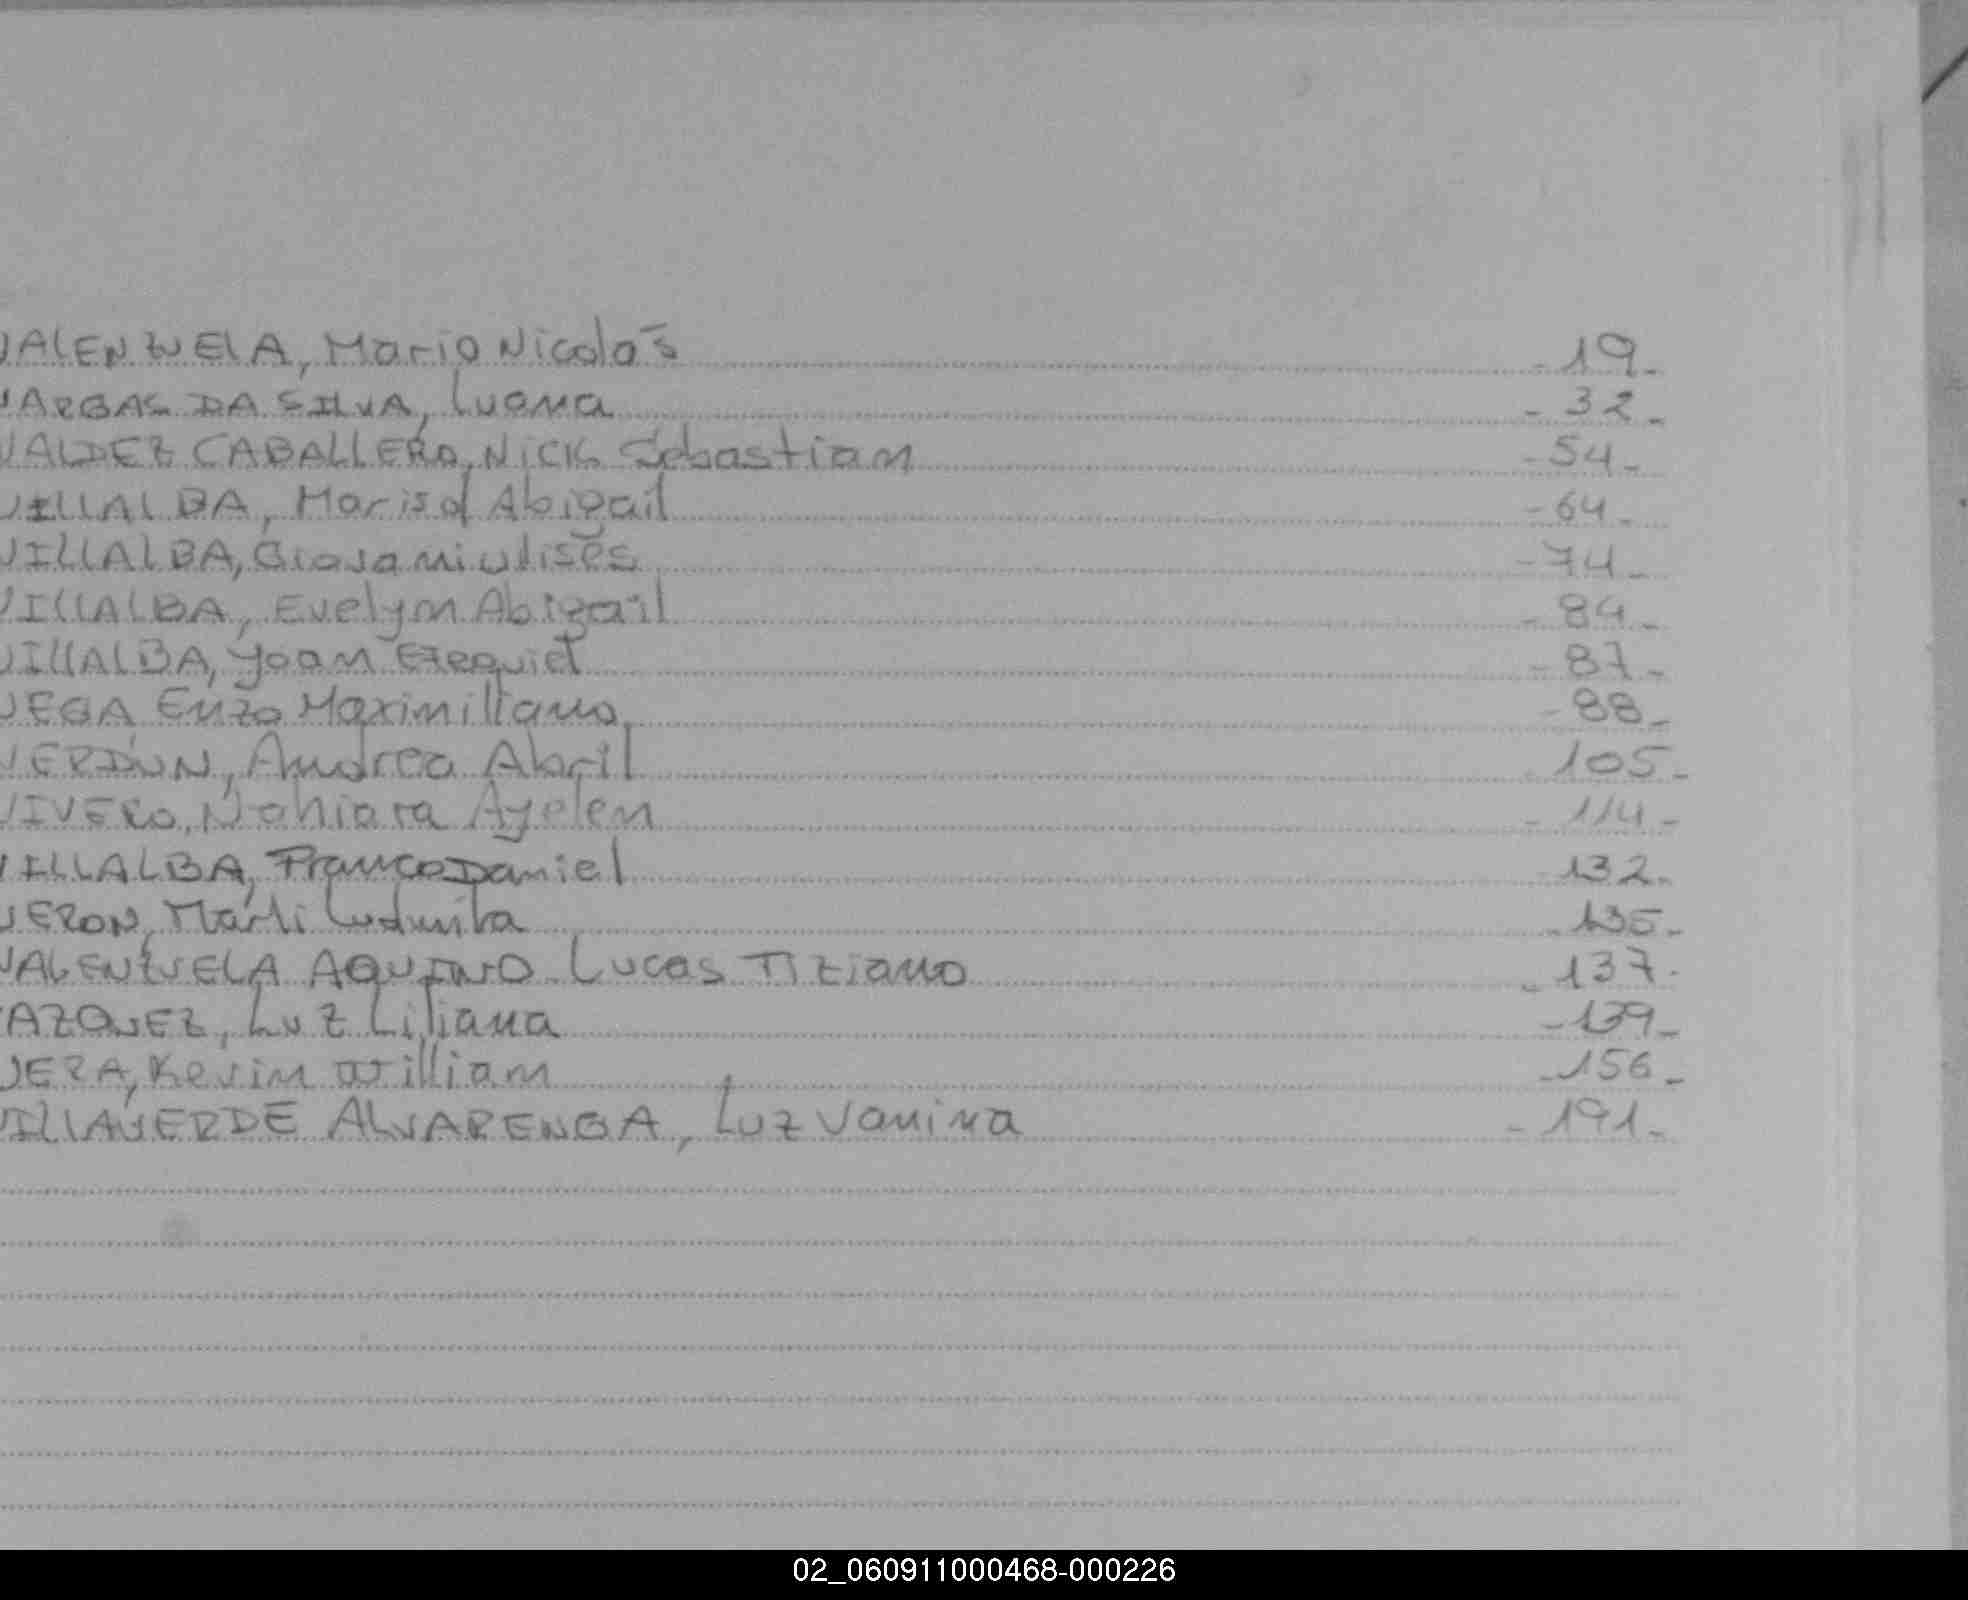 VALENZUELA, Mario Nicolás -19-
VARGAS DA SILVA, Luana -32-
VALDEZ CABALLERO, Nick Sebastian -54-
VILLALBA, Marisol Abigail -64-
VILLALBA, Giovani Ulises -74-
VILLALBA, Evelyn Abigail -84-
VILLALBA, Yoan Ezequiel -87-
VEGA, Enzo Maximiliano -88-
VERDUN, Andrea Abril -105-
VIVERO, Nahiara Ayelen -114-
VILLALBA, Franco Daniel -132-
VERON, Marli Ludmila -135-
VALENZUELA AQUINO Lucas Tiziano -137-
VAZQUEZ, Luz Liliana -139-
VERA, Kevin William -156-
VILLAVERDE ALVARENGA, Luz Vanina -191-
02_060911000468-000226